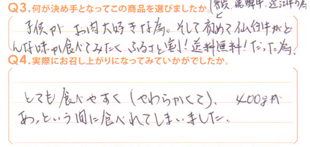 Q3.何が決め手となってこの商品を選びましたか。
子供がお肉大好きな為。そして初めて仙台牛がど
んな味か食べてみたく ふるさと割!送料無料!だった為。
Q4.実際にお召し上がりになってみていかがでしたか。
とても食べやすく(やわらかくて)、400gが
あっという間に食べれてしまいました。